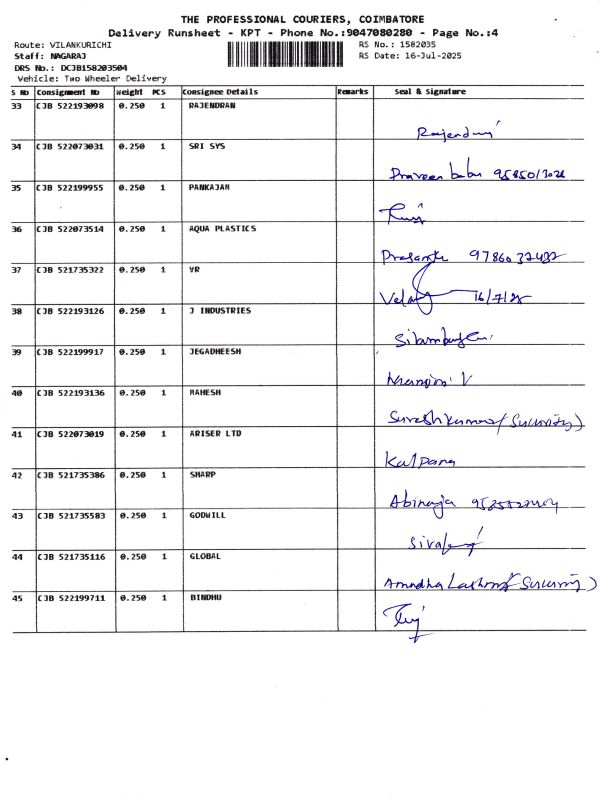 THE PROFESSIONAL COURIERS, COIMBATORE
Delivery Runsheet - KPT - Phone No.:9047080280 - Page No.:4
Route: VILANKURICHI
RS No.: 1582035
Staff: NAGARAJ
RS Date: 16-Jul-2025
DRS No.: DCJB158203504
Vehicle: Two Wheeler Delivery
S No Consignment No Weight PCS Consignee Details Remarks Seal & Signature
33 CJB 522193098 0.250 1 RAJENDRAN
34 CJB 522073031 0.250 1 SRI SYS
Praveen babu
35 CJB 522199955 0.250 1 PANKAJAM
36 CJB 522073514 0.250 1 AQUA PLASTICS
Prasanth 9786032432
37 CJB 521735322 0.250 1 VR
16/7/25
38 CJB 522193126 0.250 1 J INDUSTRIES
39 CJB 522199917 0.250 1 JEGADHEESH
40 CJB 522193136 0.250 1 MAHESH
Sureshkumar (Security)
41 CJB 522073019 0.250 1 ARISER LTD
Kalpana
42 CJB 521735386 0.250 1 SHARP
Abinaya
43 CJB 521735583 0.250 1 GODWILL
44 CJB 521735116 0.250 1 GLOBAL
(Security)
45 CJB 522199711 0.250 1 BINDHU